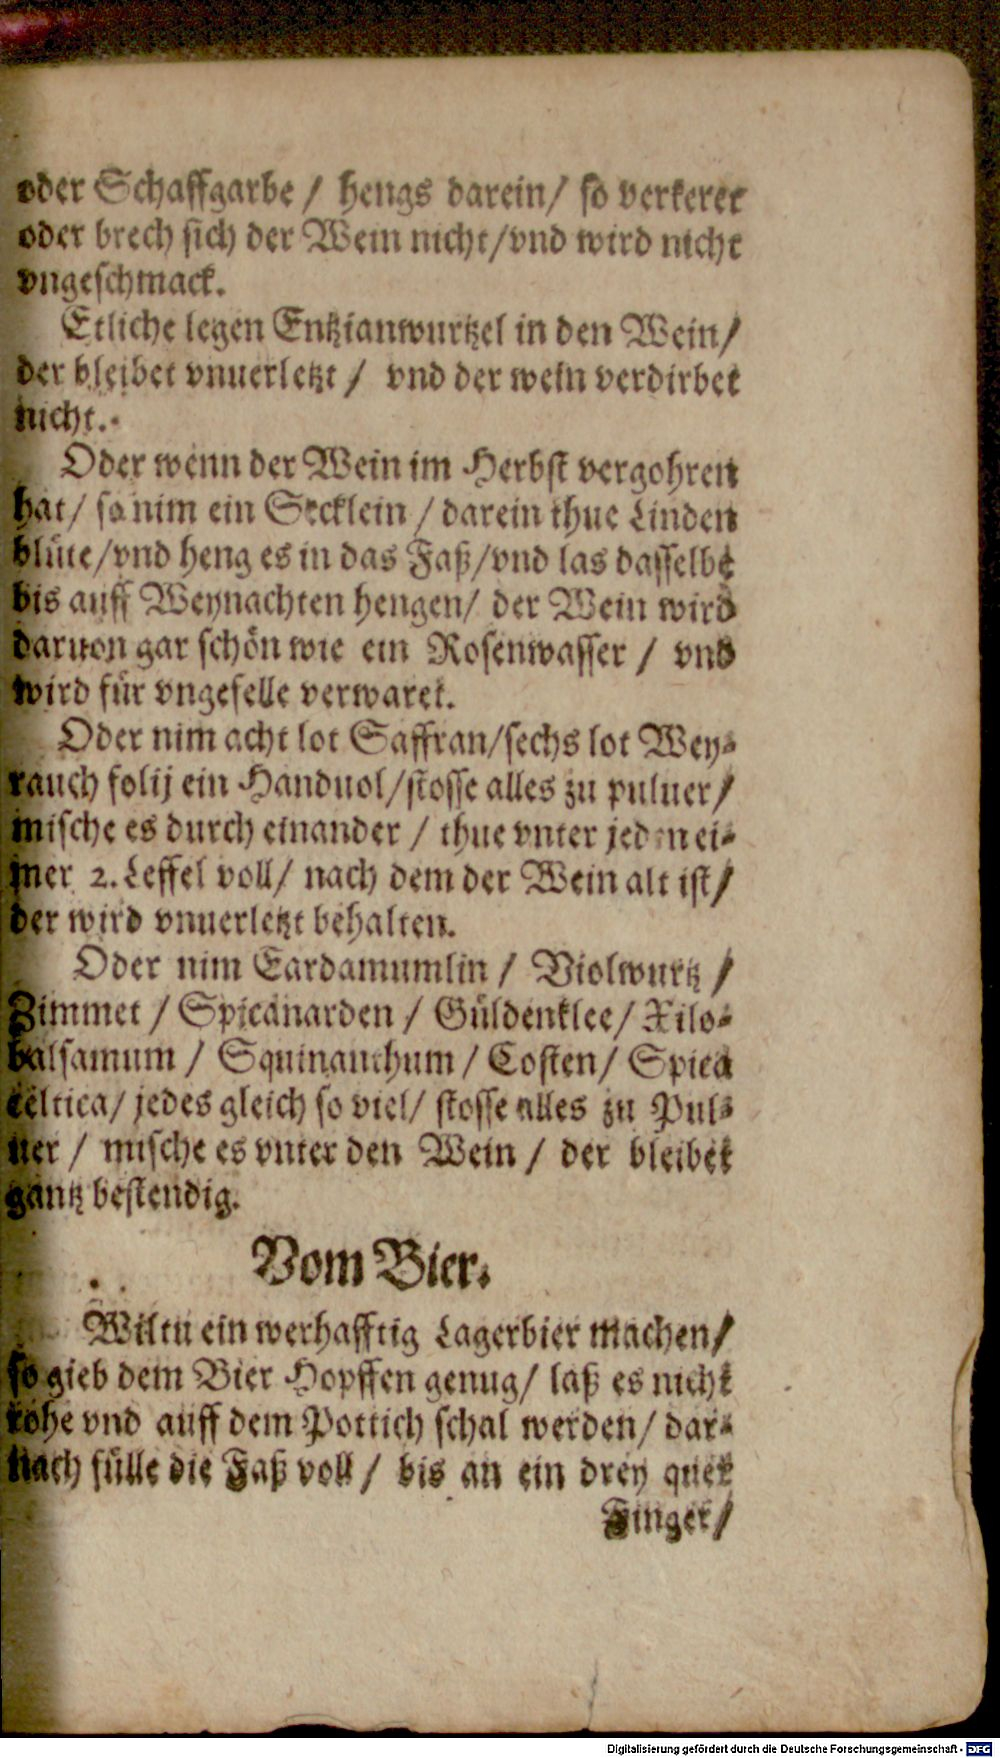 oder Schaffgarbe / hengs darein/ so verkeret
oder brech sich der Wein nicht/vnd wird nicht
vngeschmack.
Etliche legen Entzianwurtzel in den Wein/
der bleibet vnuerletzt / vnd der wein verdirbet
nicht.
Oder wenn der Wein im Herbst vergohren
hat/ so nim ein Secklein / darein thue Linden
blüte/vnd heng es in das Faß/vnd las dasselbe
bis auff Weynachten hengen/ der Wein wird
daruon gar schön wie ein Rosenwasser / vnd
wird für vngefelle verwaret.
Oder nim acht lot Saffran/sechs lot Wey-
rauch folij ein Handuol/stosse alles zu puluer/
mische es durch einander / thue vnter jeden ei-
mer 2. Leffel voll/ nach dem der Wein alt ist/
der wird vnuerletzt behalten.
Oder nim Cardamumlin / Violwurtz /
Zimmet / Spicanarden / Güldenklee/ Xilo-
balsamum / Squinanthum / Costen/ Spica
celtica/ jedes gleich so viel/ stosse alles zu Pul-
uer / mische es vnter den Wein / der bleibet
gantz bestendig.
Vom Bier.
Wiltu ein werhafftig Lagerbier machen/
so gieb dem Bier Hopffen genug/ laß es nicht
rohe vnd auff dem Pottich schal werden/ dar-
nach fülle die Faß voll / bis an ein drey quer
Finger/
Digitalisierung gefördert durch die Deutsche Forschungsgemeinschaft - DFG